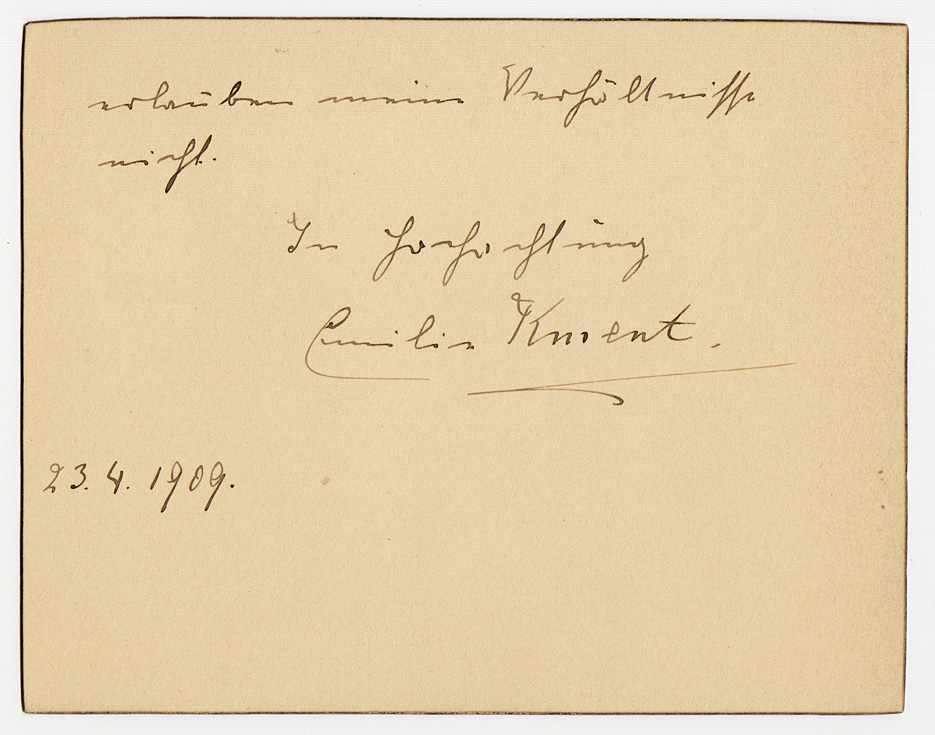 erlauben meine Verhältnisse
nicht.
In Hochachtung
Emilie Kment.
23. 4. 1909.